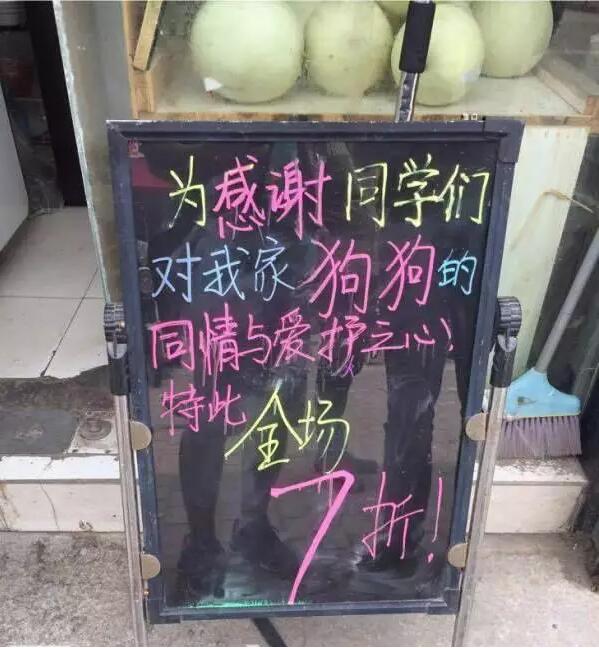 为感谢同学们
对我家狗狗的
同情与爱护之心!
特此
全场
7折!